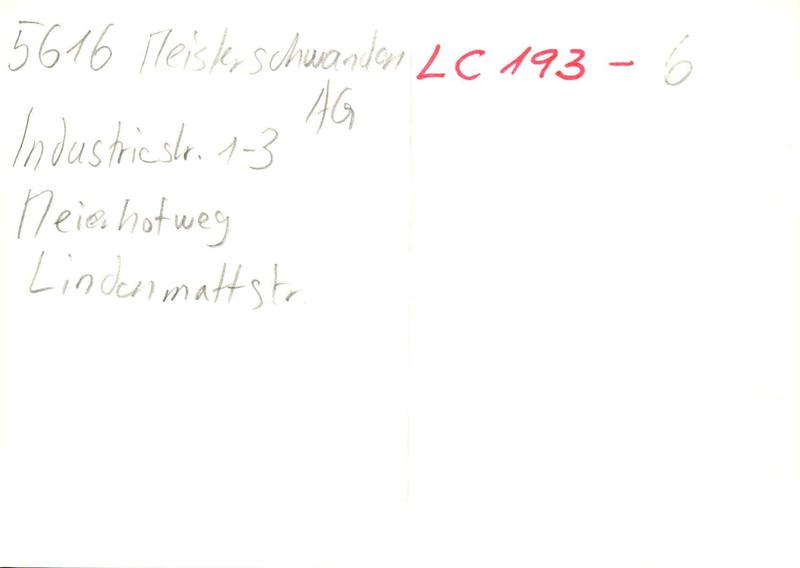 5616 Meisterschwanden LC 193 - 6
AG
Industriestr. 1-3
Meierhofweg
Lindenmattstr.